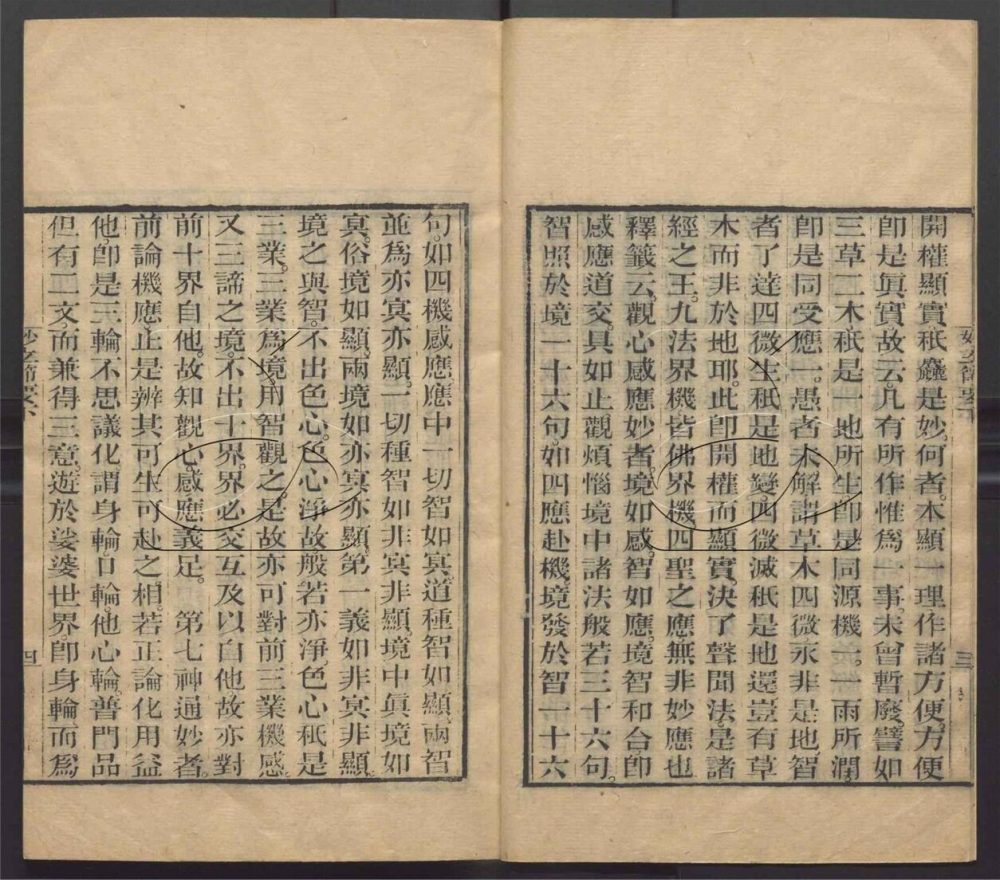 開權顯實秖麤是妙何者本顯一理作諸方便方便
卽是眞實故云凡有所作惟爲一事未曾暫廢譬如
三草二木秖是一地所生卽是同源機一一雨所潤
卽是同受應一愚者未解謂草木四微永非是地智
者了達四微生秖是地變四微滅秖是地還豈有草
木而非於地耶此卽開權而顯實決了聲聞法是諸
經之王九法界機皆佛界機四聖之應無非妙應也
釋籤云觀心感應妙者境如感智如應境智和合卽
感應道交具如止觀煩惱境中諸法般若三十六句
智照於境一十六句如四應赴機境發於智一十六
三
句如四機感應應中一切智如冥道種智如顯兩智
並爲亦冥亦顯一切種智如非冥非顯境中眞境如
冥俗境如顯兩境如亦冥亦顯第一義如非冥非顯
境之與智不出色心色心淨故般若亦淨色心秖是
三業三業爲境用智觀之是故亦可對前三業機感
又三諦之境不出十界界必交互及以自他故亦對
前十界自他故知觀心感應義足 第七神通妙者
前論機應止是辨其可生可赴之相若正論化用益
他卽是三輪不思議化謂身輪口輪他心輪普門品
但有二文而兼得三意遊於娑婆世界卽身輪而爲
四